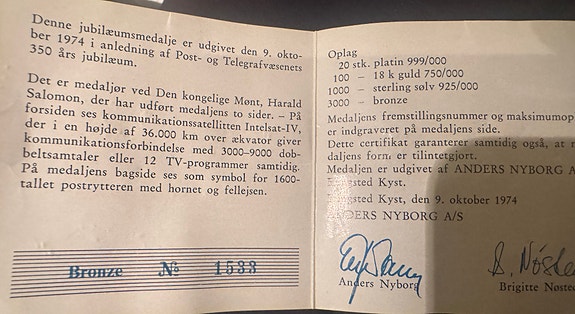 Denne jubilæumsmedalje er udgivet den 9. okto-
ber 1974 i anledning af Post- og Telegrafvæsenets
350 års jubilæum.
Det er medaljør ved Den kongelige Mønt, Harald
Salomon, der har udført medaljens to sider. – På
forsiden ses kommunikationssatellitten Intelsat-IV,
der i en højde af 36.000 km over ækvator giver
kommunikationsforbindelse med 3000–9000 dob-
beltsamtaler eller 12 TV-programmer samtidig.
På medaljens bagside ses som symbol for 1600-
tallet postrytteren med hornet og fellejsen.
Bronze № 1533
Oplag
20 stk. platin 999/000
100 – 18 k guld 750/000
1000 – sterling sølv 925/000
3000 – bronze
Medaljens fremstillingsnummer og maksimumop
er indgraveret på medaljens side.
Dette certifikat garanterer samtidig også, at
daljens form er tilintetgjort.
Medaljen er udgivet af ANDERS NYBORG A
Kyst.
Kyst, den 9. oktober 1974
ANDERS NYBORG A/S
B. Nøste
Anders Nyborg
Brigitte Nøsted